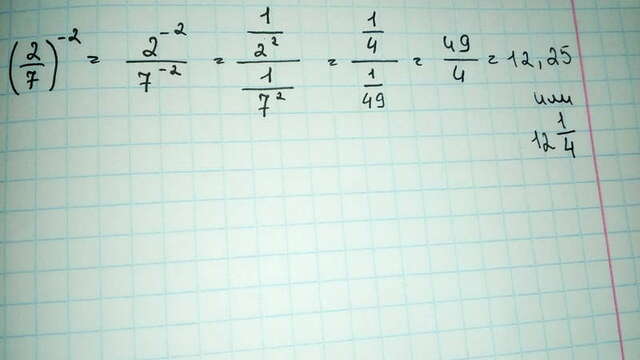 (2/7)^-2 = 2^-2/7^-2 = (1/2^2)/(1/7^2) = (1/4)/(1/49) = 49/4 = 12,25
или
12 1/4